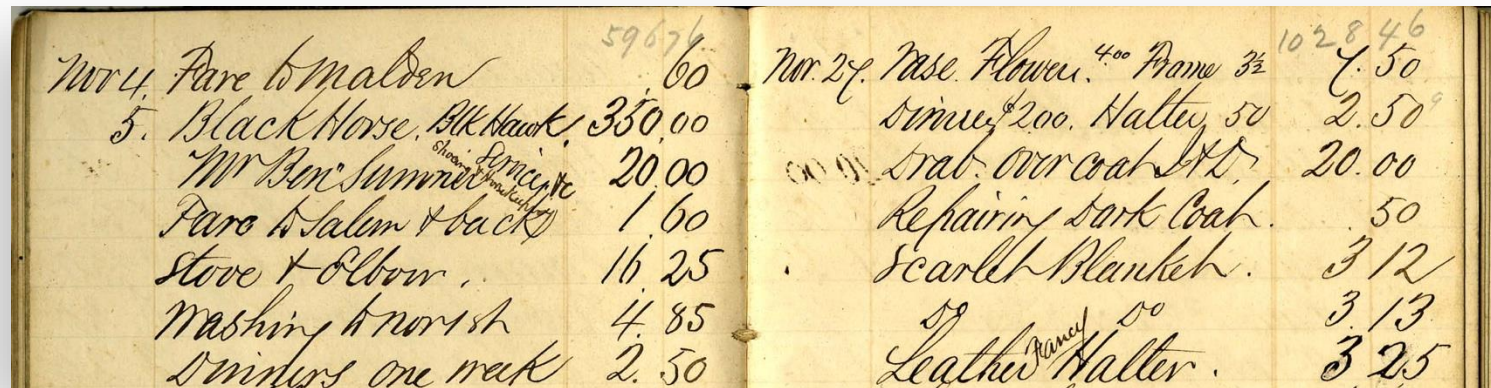 596 76
Nov 4. Fare to Malden .60
5. Black Horse. Blk Hawk. 350.00
Mr Ben Sumner Services &c 20.00
Shoeing &
Fare to Salem & back 1.60
Stove & Elbow. 16.25
Washing to Norish 4.85
Dinners one week 2.50
1028 46
Nov. 27. Vase. Flowers. 4.00 Frame 3½ 7.50
Dinner $2.00. Halter 50 2.50
Drab. Over coat 20.00
Repairing Dark Coat. .50
Scarlet Blanket. 3 12
Do Do 3.13
Leather Fancy Halter. 3 25